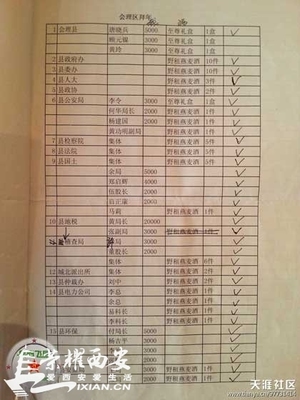 会理区拜年
1 会理县 唐晓兵 3000 至尊礼盒 1盒
顾元媒 3000 至尊礼盒 1盒
黄玲 3000 至尊礼盒 1盒
2 县政府办 野租燕麦酒 10件
3 县委办 野租燕麦酒 10件
4 县人大 野租燕麦酒
5 县政协 野租燕麦酒 2件
6 县公安局 李令 3000 野租燕麦酒
何华局长 野租燕麦酒 1件
杨建国 2000 野租燕麦酒
黄功明副局 野租燕麦酒
7 县检察院 集体 野租燕麦酒 5件
8 县法院 集体 野租燕麦酒
9 县国土 集体 野租燕麦酒
余局 5000
郑启辉 4000
伍股长 2000
白正康 2000
马莉 野租燕麦酒 1件
10 县地税 黄局长 20000
张副局 3000 野租燕麦酒
稽查局 局 3000
股长 2000
集体 野租燕麦酒 6件
12 城北派出所 集体 野租燕麦酒 2件
13 县仲裁办 刘中 野租燕麦酒 2件
14 县电力公司 李总 野租燕麦酒 2件
余总 野租燕麦酒 1件
易科长 野租燕麦酒 1件
李科长 野租燕麦酒 1件
15 县环保 付局长 5000
杨吉平 3000
3000
2000
2000 野租燕麦酒 1件
荣耀西安
爱西安爱生活
IXIAN.CN
天涯社区